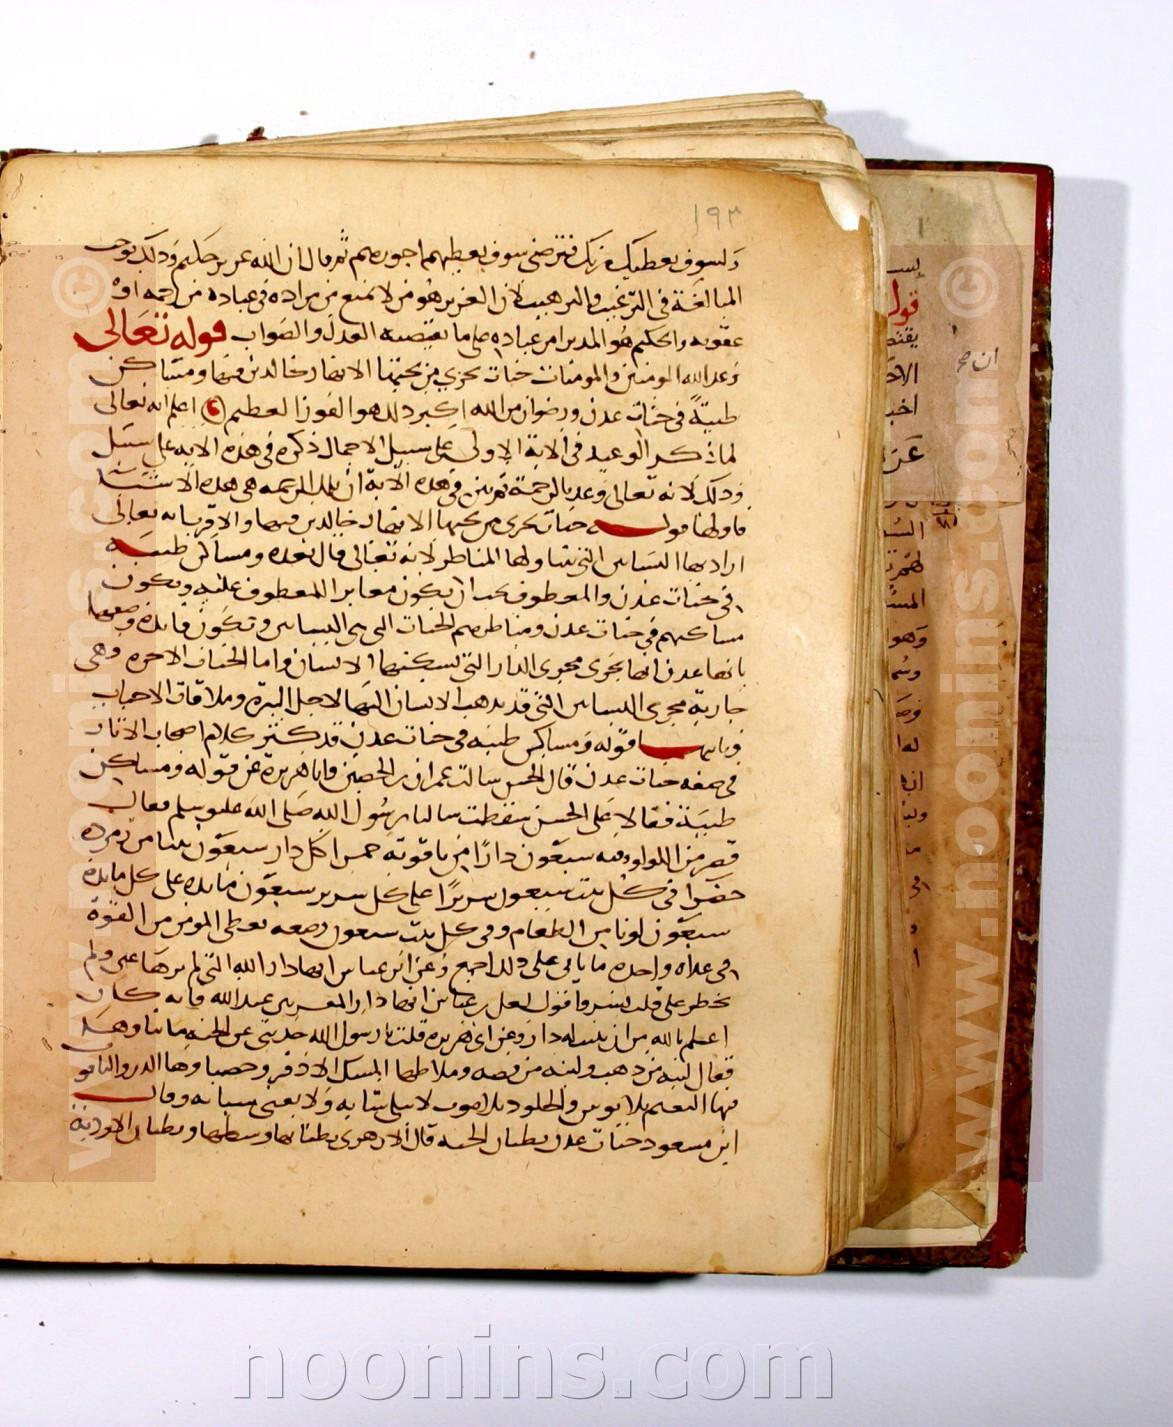 ١٩٣
ولسوف يعطيك ربك فترضى سوف يعطيهم اجورهم ثم قال ان الله عزيز حكيم وذلك يوجب
المبالغة في الترغيب والترهيب لان العزيز هو من لا يمنع من مراده في عباده من رحمة او
عقوبة والحكيم هو المدبر امر عباده على ما يقتضيه العدل والصواب قوله تعالى
وعد الله المومنين والمومنات جنات تجري من تحتها الانهار خالدين فيها ومساكن
طيبة في جنات عدن ورضوان من الله اكبر ذلك هو الفوز العظيم اعلم انه تعالى
لما ذكر الوعيد في الاية الاولى على سبيل الاجمال ذكره في هذه الاية على سبيل
وذلك لانه تعالى وعد بالرحمة ثم بين في هذه الاية ان تلك الرحمه هي هذه الاشيا
فاولها قوله جنات تجري من تحتها الانهار خالدين فيها والاقرب انه تعالى
اراد بها البساتين التي يتناولها المناظر لانه تعالى قال بعده ومساكن طيبة
في جنات عدن والمعطوف يجب ان يكون مغايرا للمعطوف عليه ويكون
مساكنهم في جنات عدن ومناظرهم الجنات التي هي البساتين وتكون فائدة وصفها
بانها عدن انها تجرى مجرى الدار التي يسكنها الانسان واما الجنات الاخره وهي
جارية مجرى البساتين التي قد يذهب الانسان اليها لاجل النزه وملاقاة الاحباب
وثانيها قوله ومساكن طيبه في جنات عدن قد كثر كلام اصحاب الاثار
في صفه جنات عدن قال الحسن سالت عمران بن الحصين وابا هريرة عن قوله ومساكن
طيبة فقالا على الخبير سقطت سالنا رسول الله صلى الله عليه وسلم فقال
قصر من اللولو فيه سبعون دارا من ياقوتة حمرا كل دار سبعون بيتا من زمرده
خضرا في كل بيت سبعون سريرا على كل سرير سبعون مائده على كل مايدة
سبعون لونا من الطعام وفي كل بيت سبعون وصيفه يعطى المومن من القوة
في غداه واحده ما ياتي على ذلك اجمع وعن ابن عباس انها دار الله التي لم ترها عين ولم
يخطر على قلب بشر واقول لعل ابن عباس انها دار المقربين عند الله فانه كان
اعلم بالله من ان يثبت له دار وعن ابي هريرة قلت يا رسول الله حدثني عن الجنه ما بناوها
فقال لبنه من ذهب ولبنه من فضه وملاطها المسك الاذفر وحصباوها الدر والياقوت
فيها النعيم بلا بوس والخلود بلا موت لا تبلى ثيابه ولا يفنى شبابه وقال
ابن مسعود جنات عدن بطنان الجنه قال الازهري بطنانها وسطها وبطنان الاودية
قول
ان صح
noonins.com
www.noonins.com ©
www.noonins.com ©